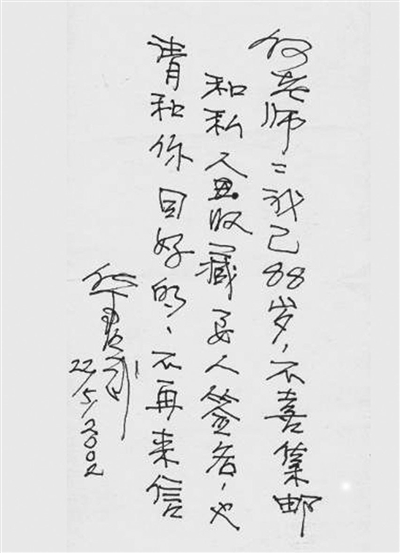 老师：我已88岁，不喜集邮
和私人收藏要人签名，也
请和你同好的，不再来信
22/5/2002